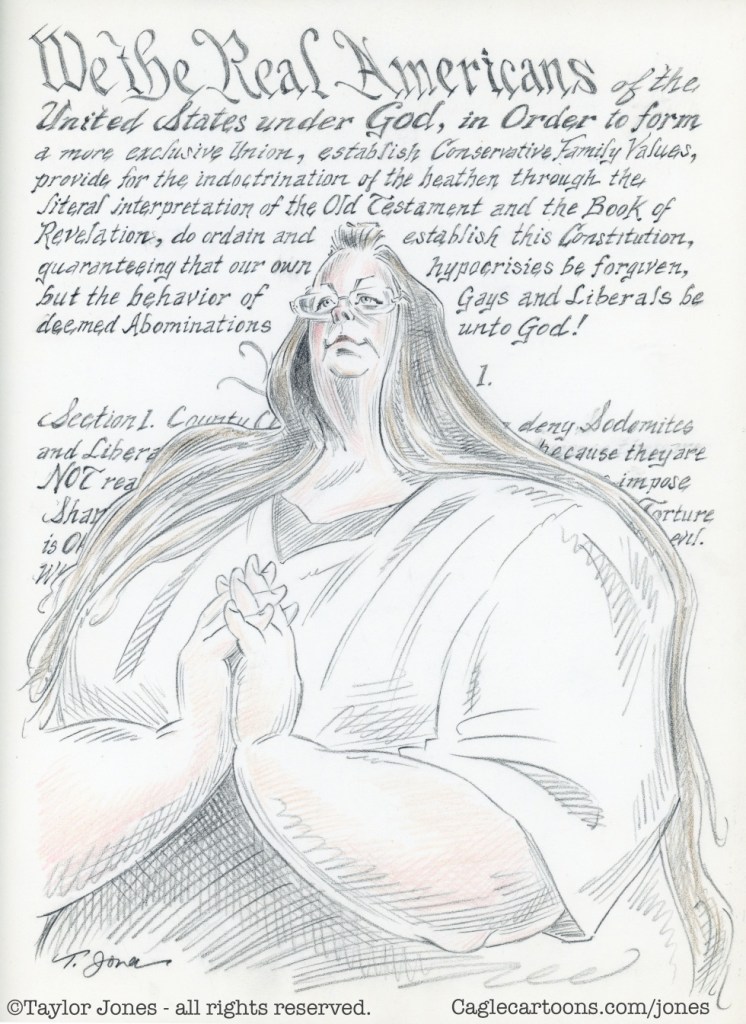 We the Real Americans of the
United States under God, in Order to form
a more exclusive Union, establish Conservative Family Values,
provide for the indoctrination of the heathen through the
literal interpretation of the Old Testament and the Book of
Revelation, do ordain and establish this Constitution,
guaranteeing that our own hypocrisies be forgiven,
but the behavior of Gays and Liberals be
deemed Abominations unto God!
1.
Section 1. County deny Sodomites
and Libera because they are
NOT rea impose
Shar Torture
is O en!.
W
T. Jones
©Taylor Jones - all rights reserved. Caglecartoons.com/jones